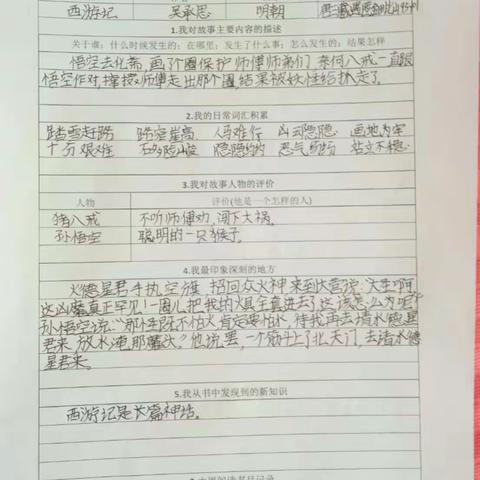 西游记 吴承恩 明朝
1.我对故事主要内容的描述
关于谁；什么时候发生的；在哪里；发生了什么事；怎么发生的；结果怎样
悟空去化斋，画了个圈保护师傅师弟们，奈何八戒一直跟
悟空作对，撺掇师傅走出那个圈结果被妖怪给抓走了。
2.我的日常词汇积累
踏雪赶路 人马难行 凶云隐隐 画地为牢
十分艰难 隐隐约约 恶气纷纷 站立不稳
3.我对故事人物的评价
人物 评价(他是一个怎样的人)
猪八戒 不听师傅劝，闯下大祸。
孙悟空 聪明的一只猴子。
4.我最印象深刻的地方
火德星君手执空旗，招回众火神，来到大圣说：“大圣啊，
这凶魔真正罕见！一圈儿把我的火具全套进去了，这该怎么为呢？”
孙悟空说：“那怪既不怕火，肯定要怕水，待我再去请水德星
君来，放水淹那魔头。”他说罢，一个筋斗上了北天门，去请水德
星君来。
5.我从书中发现到的新知识
西游记是长篇神话。